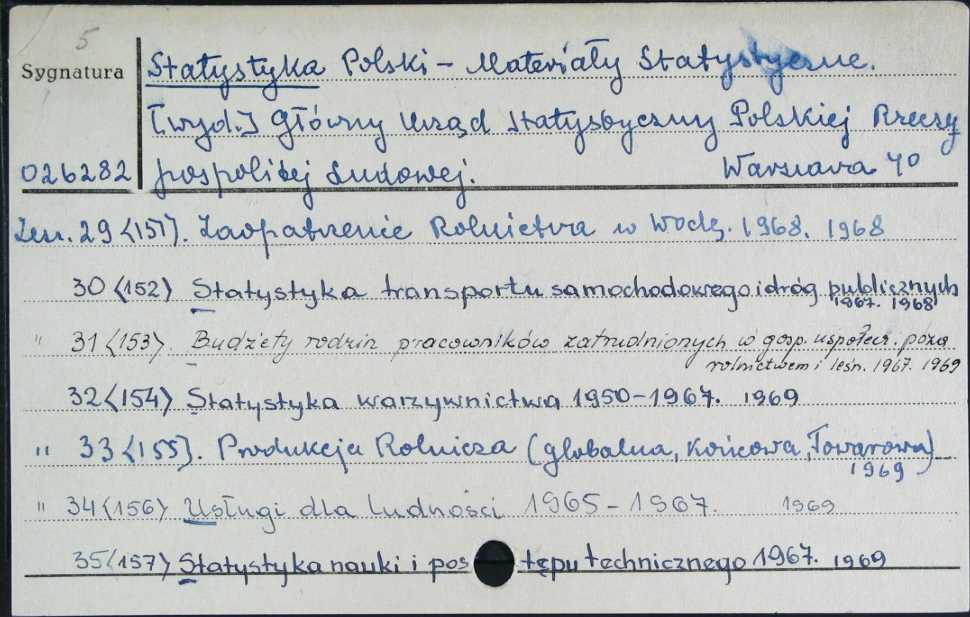 5
Sygnatura
Statystyka Polski – Materiały Statystyczne.
[wyd.] Główny Urząd Statystyczny Polskiej Rzeczy
026282 pospolitej Ludowej. Warszawa 40
Zesz. 29 <151>. Zaopatrzenie Rolnictwa w Wodę. 1968. 1968
30 <152> Statystyka transportu samochodowego i dróg publicznych
1967. 1968
" 31 <153>. Budżety rodzin pracowników zatrudnionych w gosp. uspołecz. poza
rolnictwem i leśn. 1967. 1969
32 <154> Statystyka warzywnictwa 1950–1967. 1969
" 33 <155]. Produkcja Rolnicza (globalna, Końcowa, Towarowa)
1969
" 34 <156> Usługi dla ludności 1965–1967. 1969
35 <157> Statystyka nauki i postępu technicznego 1967. 1969